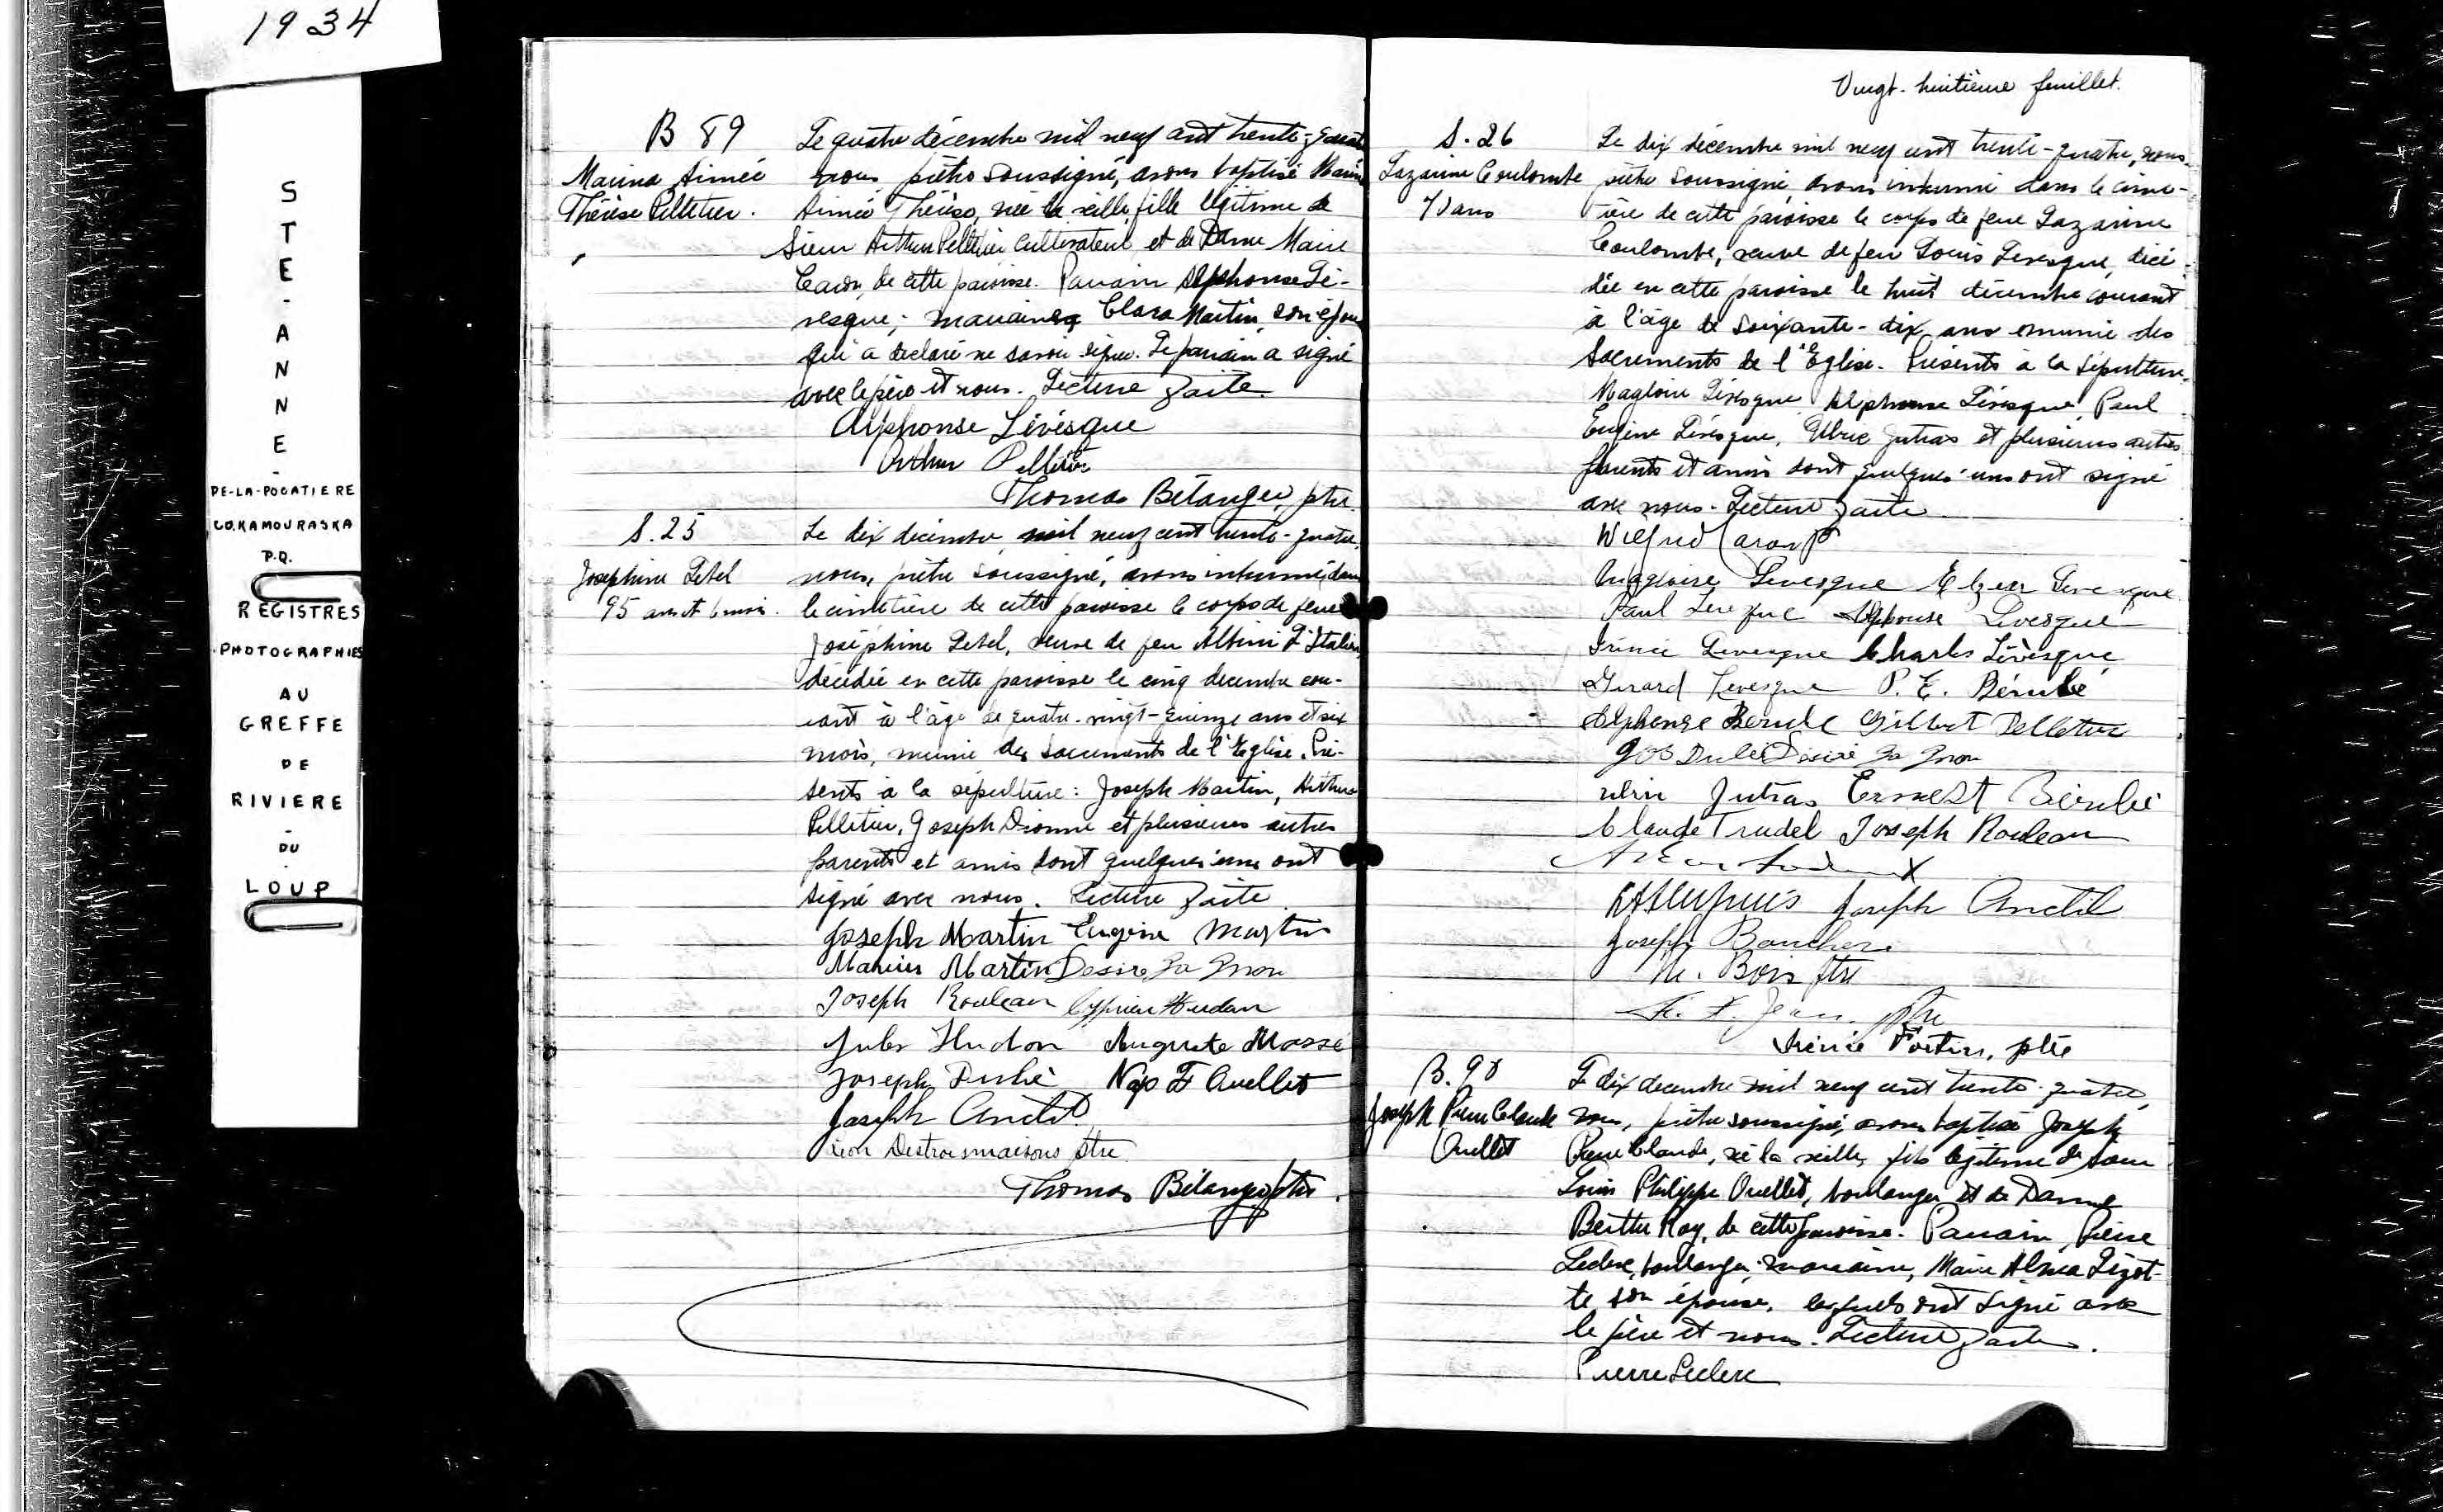 1934
STE-ANNE-
DE-LA-POCATIERE
CO. KAMOURASKA
P.Q.
REGISTRES
PHOTOGRAPHIES
AU
GREFFE
DE
RIVIERE
-
DU
-
LOUP
B 89
Marina Aimée
Thérèse Pelletier.
Le quatre décembre mil neuf cent trente-quatre
nous prêtre soussigné, avons baptisé Marina
Aimée Thérèse, née la veille, fille légitime de
Sieur Arthur Pelletier cultivateur et de Dame Marie
Caron, de cette paroisse. Parrain Alphonse Lé-
vesque; marraine Clara Martin, son épouse
qui a déclaré ne savoir signer. Le parrain a signé
avec le père et nous. Lecture faite.
Alphonse Lévesque
Arthur Pelletier
Thomas Bélanger, ptre
S. 25
Joséphine Letel
95 ans et 6 mois.
Le dix décembre mil neuf cent trente-quatre,
nous, prêtre soussigné, avons inhumé, dans
le cimetière de cette paroisse le corps de feue
Joséphine Letel, veuve de feu Albini L'Italien,
décédée en cette paroisse le cinq décembre cou-
rant à l'âge de quatre-vingt-quinze ans et six
mois, munie des sacrements de l'Eglise. Pré-
sents à la sépulture: Joseph Martin, Arthur
Pelletier, Joseph Dionne et plusieurs autres
parents et amis dont quelques-uns ont
signé avec nous. Lecture faite.
Joseph Martin Eugène Martin
Martin Desire
Joseph Rouleau Cyprien Hudon
Jules Hudon Auguste Masse
Joseph Dubé Nap Ouellet
Joseph Anctil
Léon Destroismaisons ptre
Thomas Bélanger ptre.
Vingt-huitième feuillet.
S. 26
Lazarine Coulombe
70 ans
Le dix décembre mil neuf cent trente-quatre, nous,
prêtre soussigné, avons inhumé dans le cime-
tière de cette paroisse le corps de feue Lazarine
Coulombe, veuve de feu Louis Levesque, décé-
dée en cette paroisse le huit décembre courant
à l'âge de soixante-dix ans munie des
Sacrements de l'Eglise. Présents à la sépulture,
Magloire Lévesque, Alphonse Lévesque, Paul
Eugène Lévesque, Ulric Jutras et plusieurs autres
parents et amis dont quelques-uns ont signé
avec nous. Lecture faite.
Wilfrid Caron
Magloire Levesque Elzear Levesque
Paul Levesque Alphonse Levesque
Irénée Levesque Charles Lévesque
Gérard Levesque P. E. Bérubé
Alphonse Berube Gilbert Pelletier
Dubé Désiré
Ulric Jutras Ernest Bérubé
Claude Trudel Joseph Rouleau
Joseph Anctil
Joseph Boucher
M. Bois ptre
Jean, ptre
Irénée Fortin, ptre
B. 90
Joseph Pierre Claude
Ouellet
Le dix décembre mil neuf cent trente-quatre,
nous, prêtre soussigné, avons baptisé Joseph
Pierre Claude, né la veille, fils légitime de Sieur
Louis Philippe Ouellet, boulanger et de Dame
Berthe Roy, de cette paroisse. Parrain, Pierre
Leclerc, boulanger; marraine, Marie Alma Lizot-
te son épouse, lesquels ont signé avec
le père et nous. Lecture faite.
Pierre Leclerc